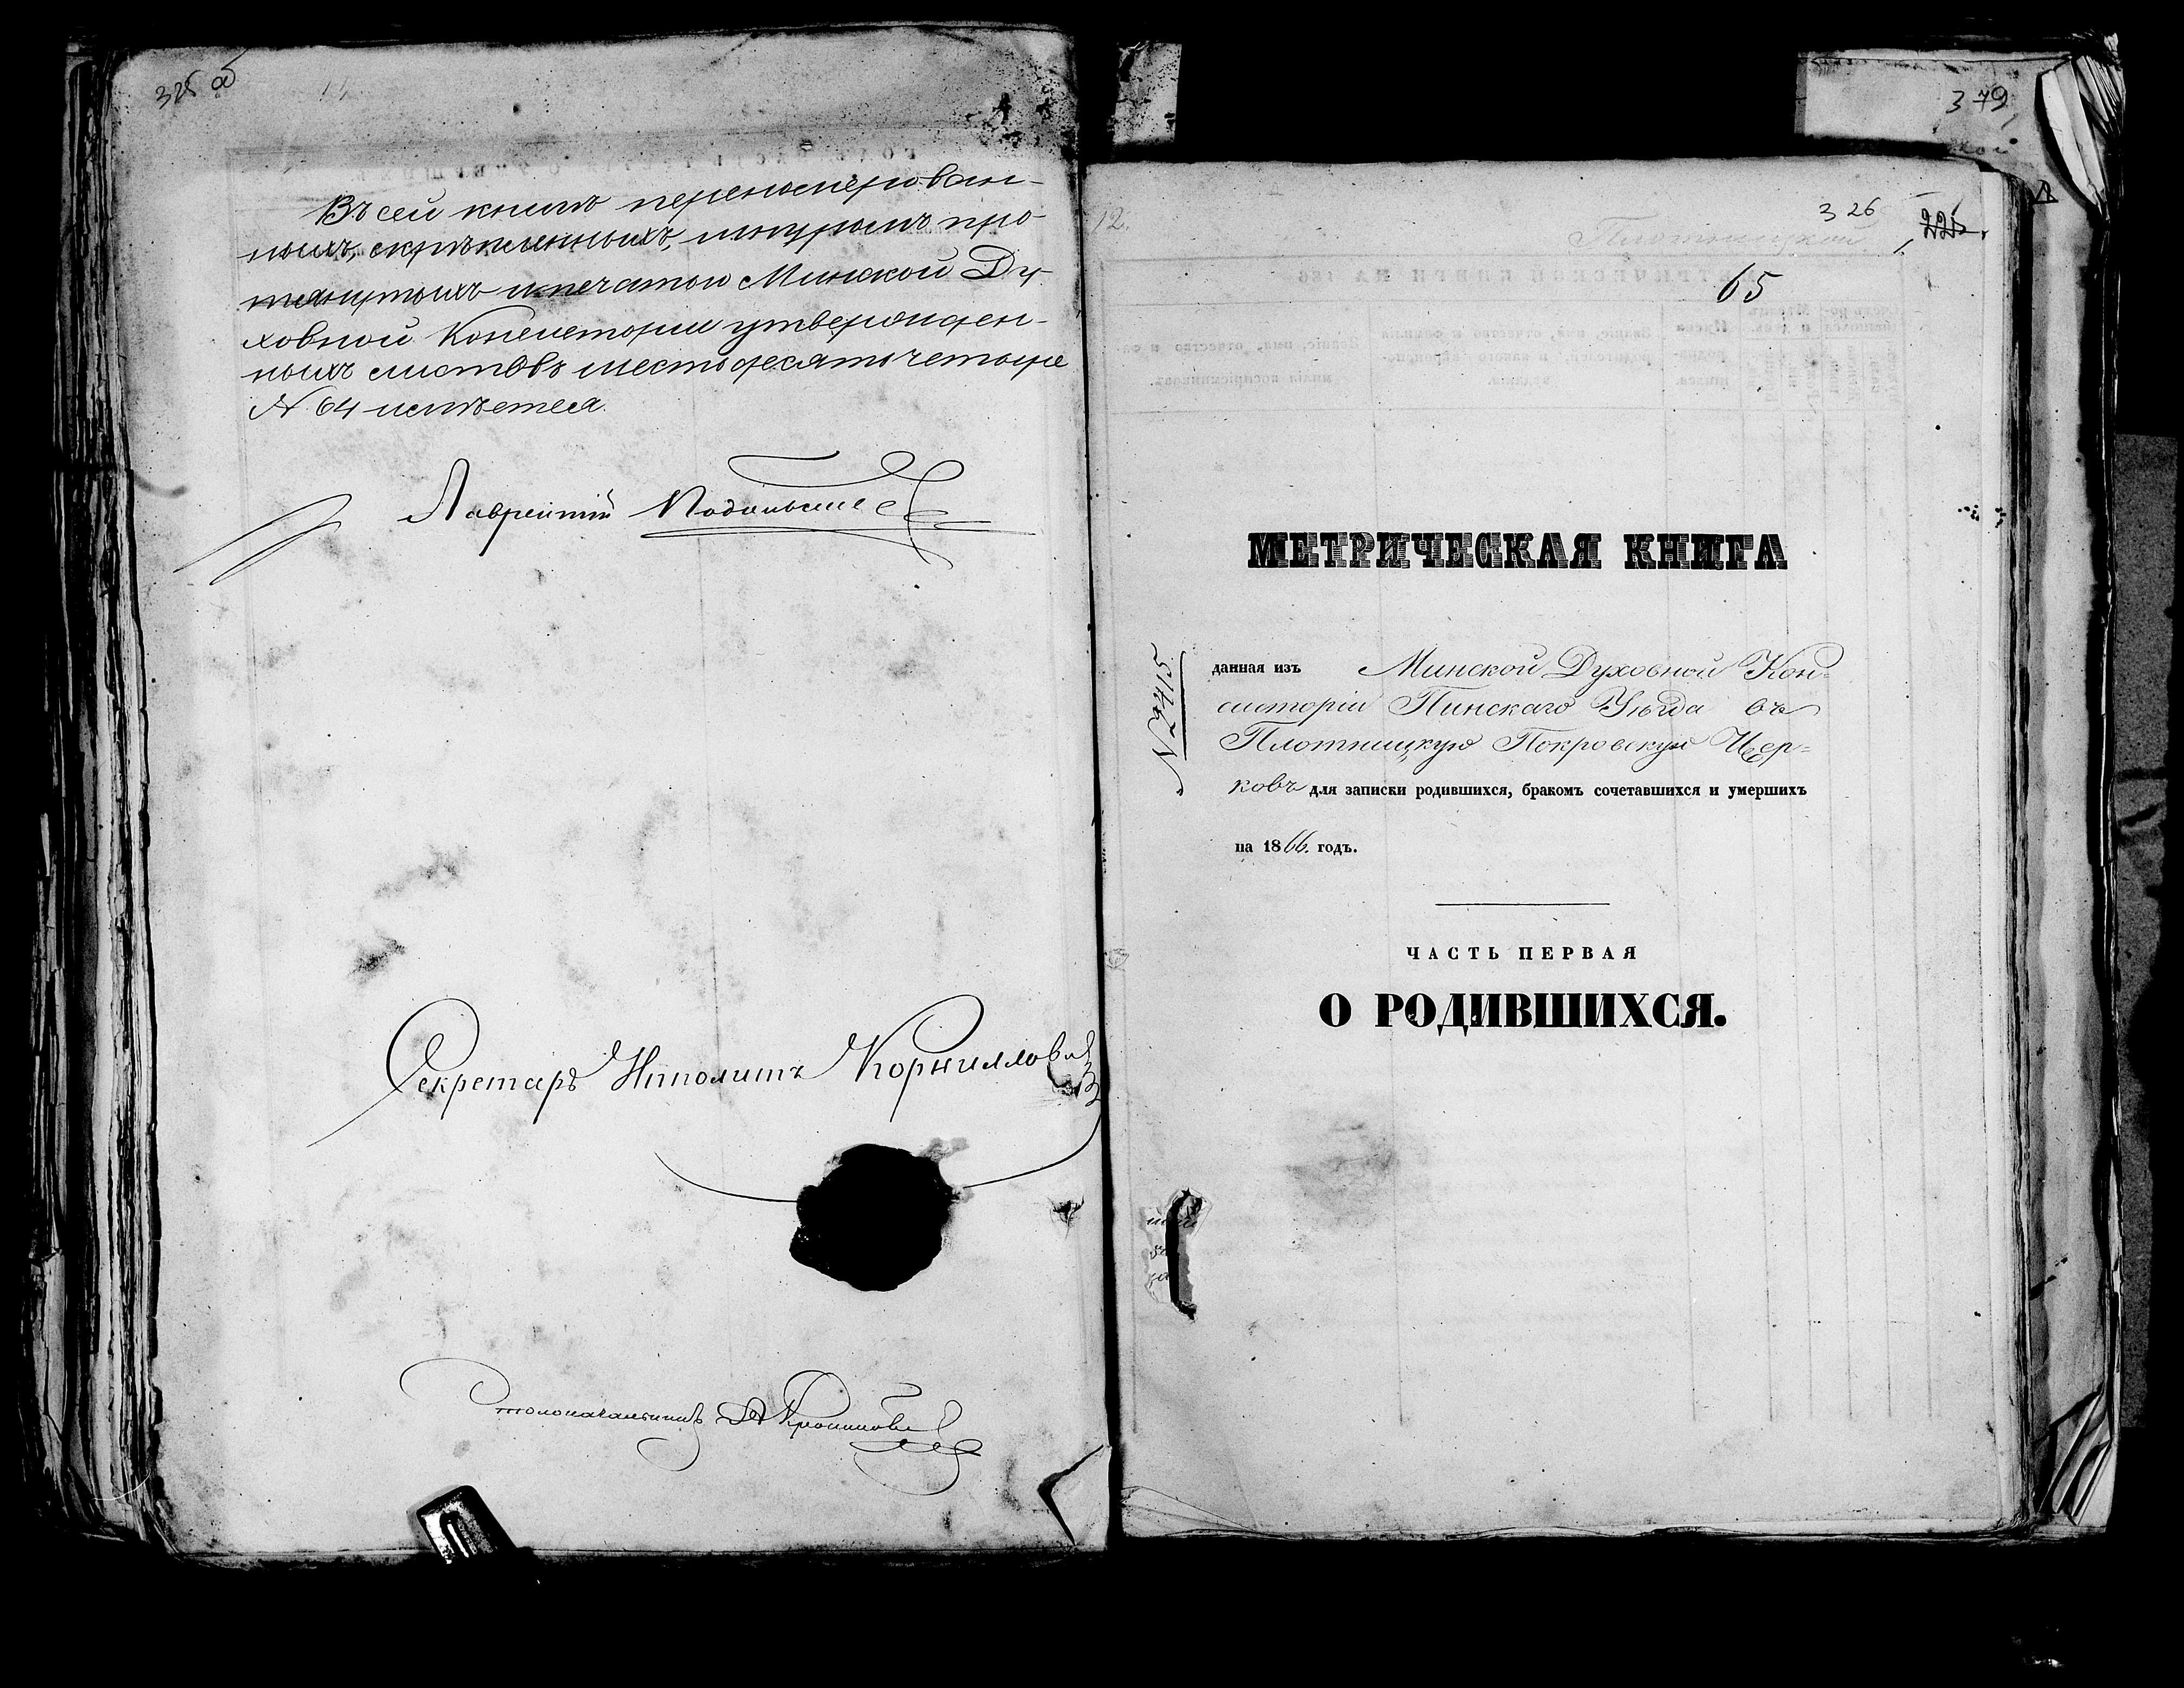 325 об
Въ сей книгѣ перенумерован-
ныхъ, скрѣпленныхъ, шнуромъ про-
тянутыхъ и печатью Минской Ду-
ховной Консисторіи утвержден-
ныхъ листовъ шестьдесятъ четыре
№ 64 числится.
Лаврентій
Секретарь Иполитъ Корниллов
Столоначальникъ
379
12.
326
225
Плотницкой
65
МЕТРИЧЕСКАЯ КНИГА
№ 2415
данная изъ Минской Духовной Кон=
систоріи Пинскаго Уѣзда въ
Плотницкую Покровскую Цер=
ковь для записки родившихся, бракомъ сочетавшихся и умершихъ
на 1866. годъ.
ЧАСТЬ ПЕРВАЯ
О РОДИВШИХСЯ.